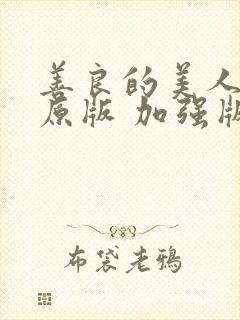 善良的美人
原版 加强版
布袋老鸦